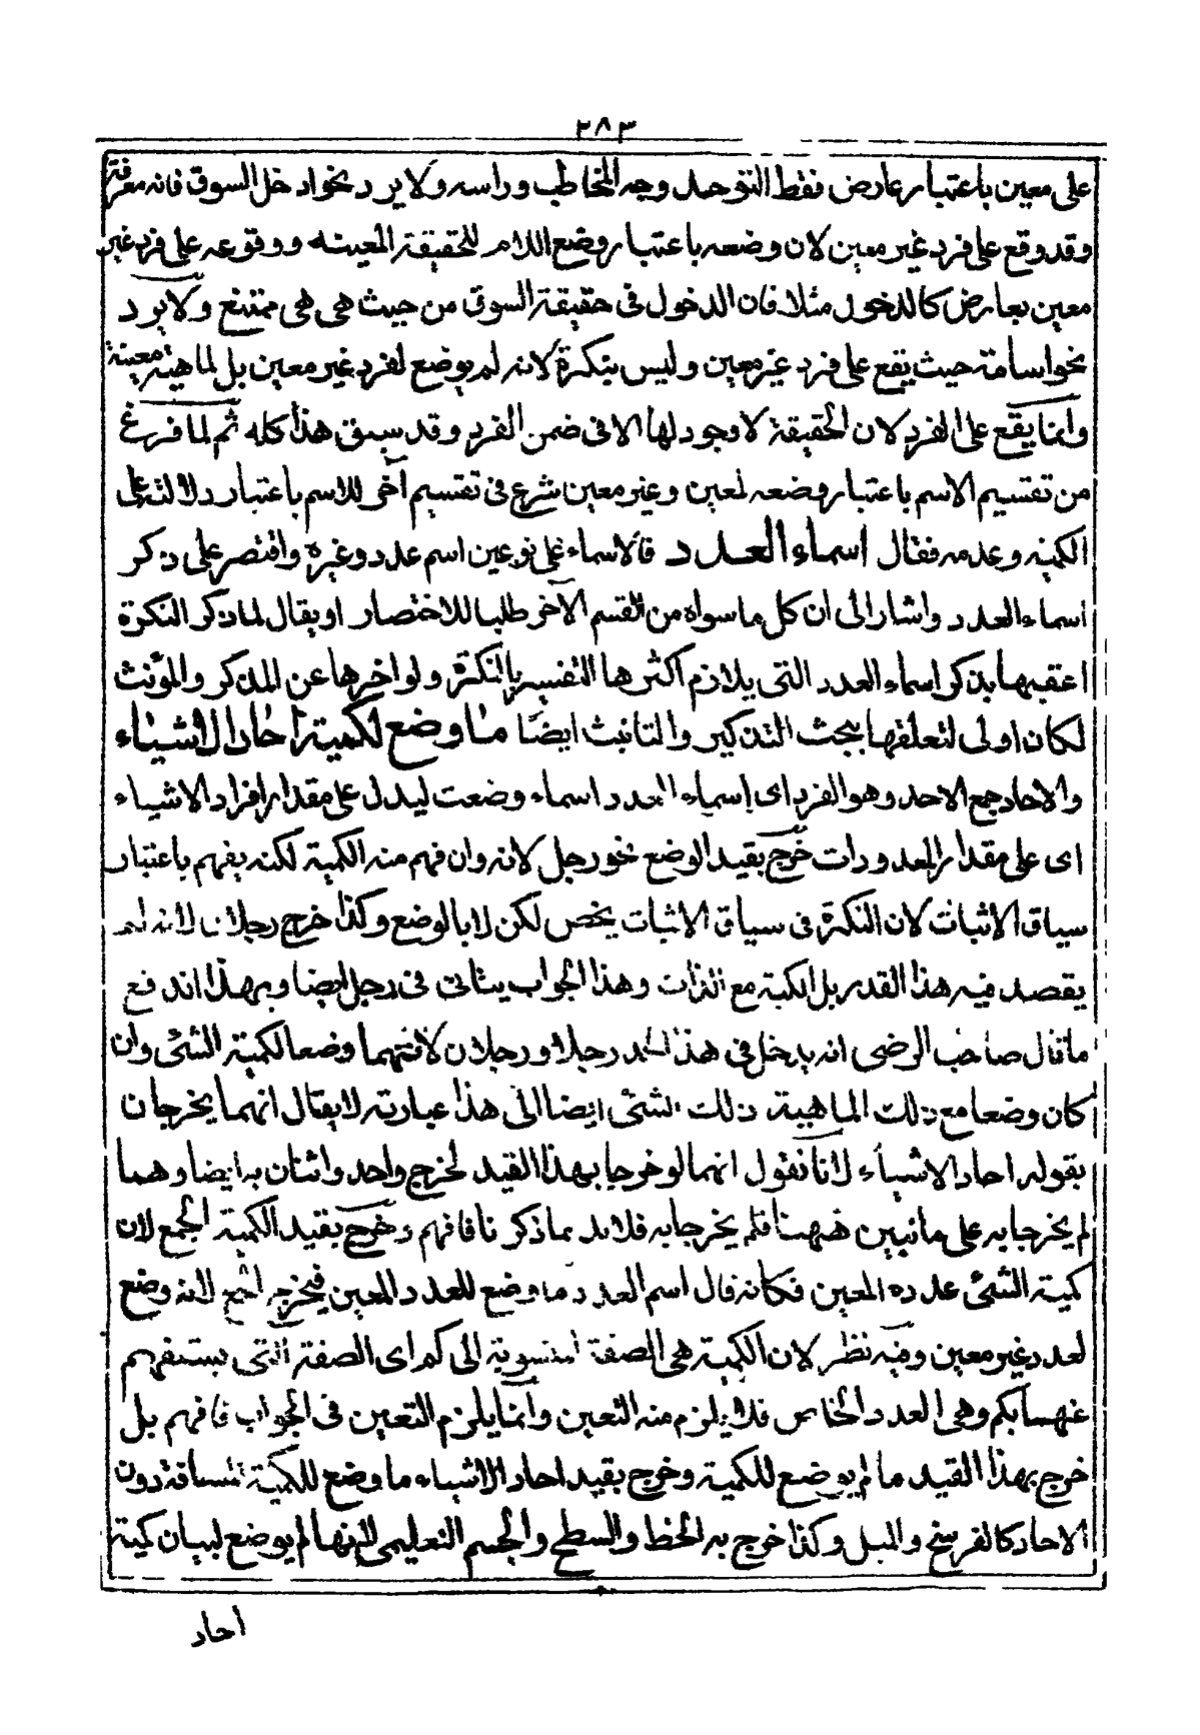 ٢٨٣
على معين باعتبار عارض فقط التوحد وجه المخاطب وراسه ولا يرد نحو ادخل السوق فانه معرفة
وقد وقع على فرد غير معين لان وضعه باعتبار وضع اللام للحقيقة المعينه ووقوعه على فرد غير
معين بعارض كالدخول مثلا فان الدخول فى حقيقة السوق من حيث هى هى ممتنع ولا يرد
نحو اسامة حيث يقع على فرد غير معين وليس بنكرة لانه لم يوضع لفرد غير معين بل لماهية معينة
وانما يقع على الفرد لان الحقيقة لا وجود لها الا فى ضمن الفرد وقد سبق هذا كله ثم لما فرغ
من تقسيم الاسم باعتبار وضعه لمعين وغير معين شرع فى تقسيم آخر للاسم باعتبار دلالته على
الكمية وعدمه فقال اسماء العدد فالاسماء على نوعين اسم عدد وغيره واقتصر على ذكر
اسماء العدد واشار الى ان كل ما سواه من القسم الآخر طلبا للاختصار او يقال لما ذكر النكرة
اعقبها بذكر اسماء العدد التى يلازم اكثرها التفسير بالنكرة ولو اخرها عن المذكر والمؤنث
لكان اولى لتعلقها ببحث التذكير والتانيث ايضا ما وضع لكمية احاد الاشياء
والاحاد جمع الاحد وهو الفرد اى اسماء العدد اسماء وضعت ليدل على مقدار افراد الاشياء
اى على مقدار المعدودات خرج بقيد الوضع نحو رجل لانه وان فهم منه الكمية لكنه يفهم باعتبار
سياق الاثبات لان النكرة فى سياق الاثبات يخص لكن لا بالوضع وكذا خرج رجلان لانه لم
يقصد فيه هذا القدر بل الكمية مع الذات وهذا الجواب يتاتى فى رجل ايضا وبهذا اندفع
ما قال صاحب الرضى انه يدخل فى هذا الحد رجل ورجلان لانهما وضعا لكمية الشئ وان
كان وضعا مع ذلك الماهية ذلك الشئ ايضا الى هذا عبارته لا يقال انهما يخرجان
بقوله احاد الاشياء لانا نقول انهما لو خرجا بهذا القيد لخرج واحد واثنان به ايضا وهما
لم يخرجا به على ما تبين فههنا فلم يخرجا به فلا بد مما ذكرنا فافهم وخرج بقيد الكمية الجمع لان
كمية الشئ عدده المعين فكانه قال اسم العدد ما وضع للعدد المعين فيخرج الجمع لانه وضع
لعدد غير معين وفيه نظر لان الكمية هى الصفة المنسوبة الى كم اى الصفة التى يستفهم
عنها بكم وهى العدد الخاص فلا يلزم منه التعين وانما يلزم التعين فى الجواب فافهم بل
خرج بهذا القيد ما لم يوضع للكمية وخرج بقيد احاد الاشياء ما وضع للكمية المسافة دون
الاحاد كالفرسخ والميل وكذا خرج به الخط والسطح والجسم التعليمى لانها لم يوضع لبيان كمية
احاد